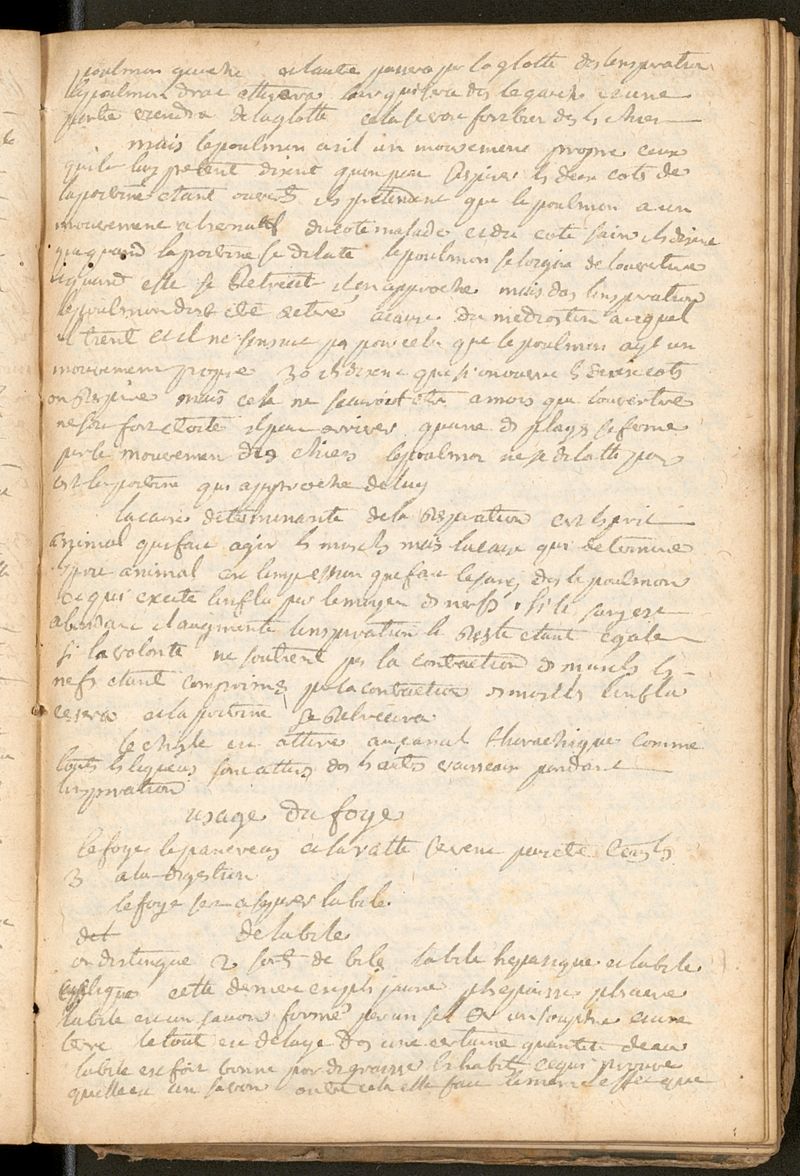 poulmon gauche et lautre passera par la glotte des linspiration
le poulmon droit attirera lair qui sera ds le gauche et une
partie viendra de la glotte cela se voit fort bien ds ls chiens
mais le poulmon a til un mouvement propre ceux
qui le luy pretent disent qu'on peut respirer ls deux cotés de
la poitrine etant ouverts ils pretendent que le poulmon a un
mouvement alternatif du coté malade et du coté sain ils disent
que quand la poitrine se dilate le poulmon seloigne de louverture
et quand elle se retrecit il en approche mais dans linspiration
le poulmon doit etre retiré a cause du mediastin auquel
il tient et il ne sensuit pas pour cela que le poulmon aye un
mouvement propre 3o ils disent que si on ouvre ls deux cotés
on respire mais cela ne scauroit etre a moins que louverture
ne soit fort etroite il peut arriver qu'une ds playes se ferme
par le mouvement des chiens le poulmon ne se dilatte pas
est la poitrine qui approche de luy
la cause determinante de la respiration est lesprit
animal qui fait agir ls muscls mais la cause qui determine
lesprit animal est limpession que fait le sang ds le poulmon
ce qui excite linflux par le moyen ds nerfs si le sang est
abondant il augmente linspiration le reste etant egale
si la volonté ne soutient pas la contraction ds muscls ls
nefs etant comprimés par la contraction ds muscls linflux
cessera et la poitrine se retrecira
le chyle est attiré au canal thorachique comme
touts ls liqueurs sont attirés ds ls autrs vaisseaux pendant
linspiration
usage du foye
le foye le pancreas et la ratte servent
3 a la digestion
le foye sert a separer la bile
det de la bile
on distingue 2 sorts de bile la bile hepatique et la bile
cystique cette derniere est pls jaune pls epaisse pls acre
la bile est un savon formé par un sel et un souphre et une
terre le tout est delayé ds une certaine quantité deau
la bile est fort bonne pour degraisser ls habits ce qui prouve
quelle est un savon outre cela elle fait le meme effet que